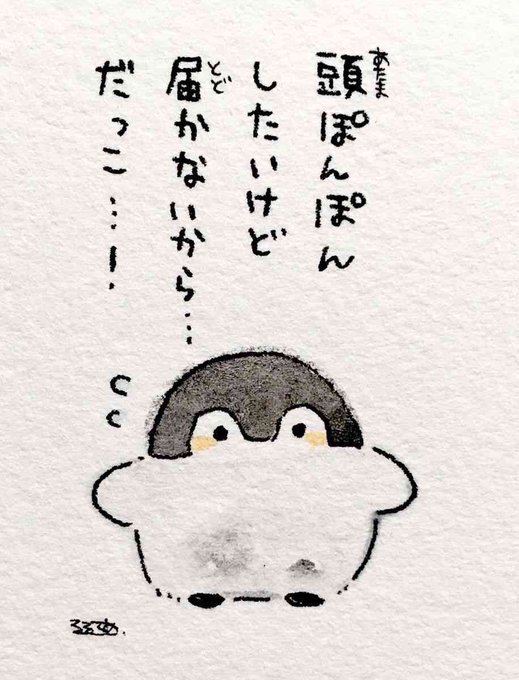 頭ぽんぽん
したいけど
届かないから…
だっこ…!
あたま
とど
るるてあ